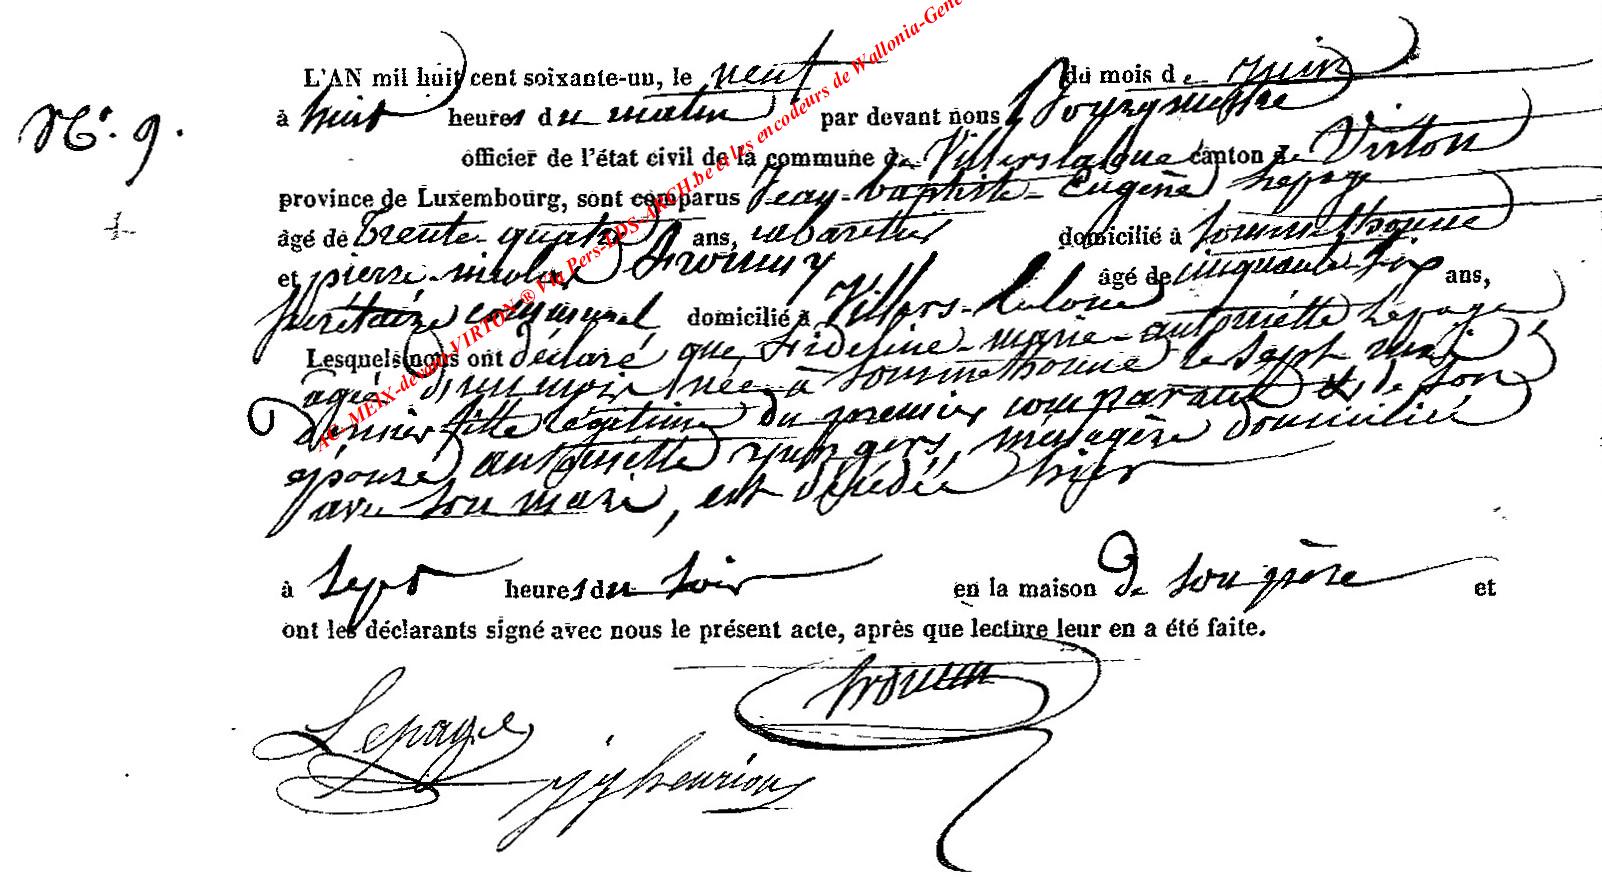 L'AN mil huit cent soixante-un, le neuf du mois de juin
N°. 9.
à huit heures du matin par devant nous Bourgmestre
officier de l'état civil de la commune de Villerslaloue canton de Virton
province de Luxembourg, sont comparus Jean-baptiste-Eugène Lepage
âgé de Trente-quatre ans, cabaretier domicilié à Sommethonne
et pierre-nicolas Fromury âgé de cinquante six ans,
secrétaire communal domicilié à Villers-laloue
Lesquels nous ont déclaré que, Fideline-marie-antoinette Lepage
agée d'un mois née à Sommethonne le sept mai
dernier fille légitime du premier comparant & de son
épouse antoinette yungers, ménagère domiciliée
avec son mari, est décédée hier
à sept heures du soir en la maison de son père et
ont les déclarants signé avec nous le présent acte, après que lecture leur en a été faite.
Lepage
henrion
AC- MEIX-devant VIRTON ® Via Pers-LDS-ARCH.be et les encodeurs de Wallonia-Gene